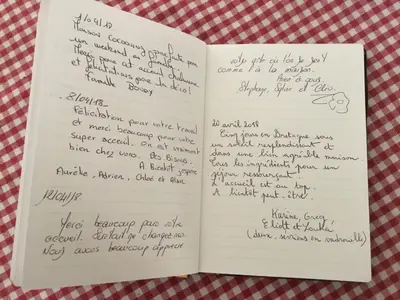 1/04/18
Maison Cocooning, parfaite pour
un weekend en famille.
Merci pour cet accueil chaleureux
et félicitations pour la déco!
Famille
8/04/18.
Félicitation pour votre travail
et merci beaucoup pour votre
super accueil. On est vraiment
bien chez vous. Des Bisous.
A Bientôt j'espère
Aurélie, Adrien, Chloé et
12/04/18
Merci beaucoup pour votre
accueil. Surtout ne changez rien.
Nous avons beaucoup apprécié
votre gîte où l'on se sent
comme à la maison.
Merci à vous.
Stéphany, et
20 avril 2018
Cinq jours en Bretagne sous
un soleil resplendissant et
dans une bien agréable maison
Tous les ingrédients pour un
séjour ressourçant.
L'accueil est au top.
A bientôt peut-être.
Karine, Greg,
Eliott et
(deux sirènes en vadrouille)